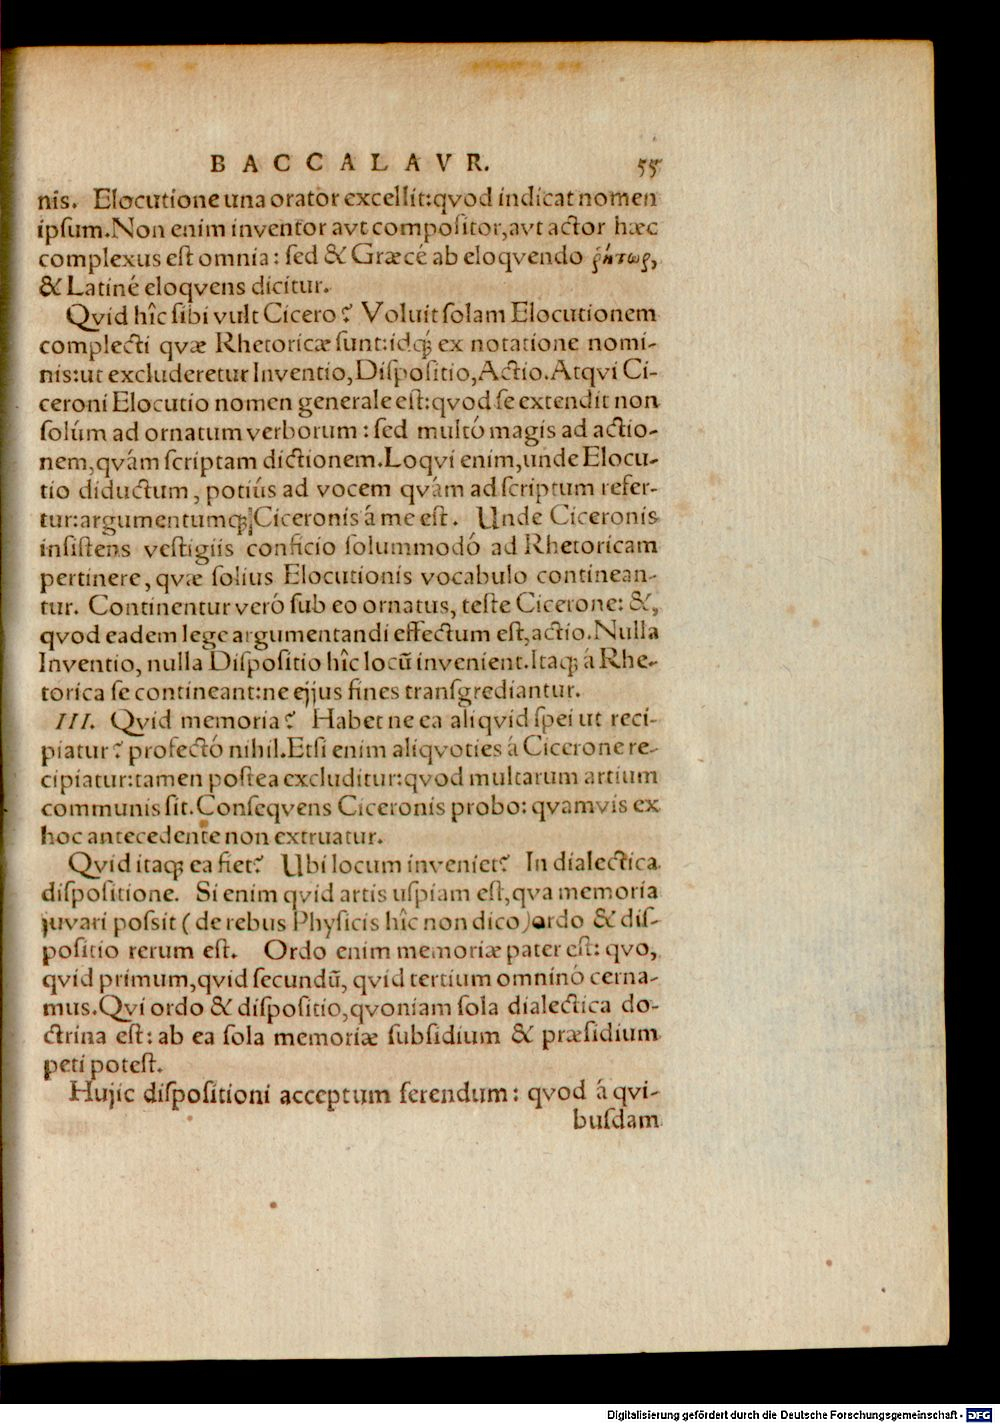 BACCALAVR. 55
nis. Elocutione una orator excellit: qvod indicat nomen
ipsum. Non enim inventor avt compositor, avt actor hæc
complexus est omnia: sed & Græcé ab eloqvendo ῥήτωρ,
& Latiné eloqvens dicitur.
Qvid hîc sibi vult Cicero? Voluit solam Elocutionem
complecti qvæ Rhetoricæ sunt: idq́; ex notatione nomi-
nis: ut excluderetur Inventio, Dispositio, Actio. Atqvi Ci-
ceroni Elocutio nomen generale est: qvod se extendit non
solúm ad ornatum verborum: sed multó magis ad actio-
nem, qvám scriptam dictionem. Loqvi enim, unde Elocu-
tio diductum, potiús ad vocem qvám ad scriptum refer-
tur: argumentumq́; Ciceronis á me est. Unde Ciceronis
insistens vestigiis conficio solummodó ad Rhetoricam
pertinere, qvæ solius Elocutionis vocabulo continean-
tur. Continentur veró sub eo ornatus, teste Cicerone: &,
qvod eadem lege argumentandi effectum est, actio. Nulla
Inventio, nulla Dispositio hîc locũ invenient. Itaq; á Rhe-
torica se contineant: ne ejjus fines transgrediantur.
III. Qvid memoria? Habet ne ea aliqvid spei ut reci-
piatur? profectó nihil. Etsi enim aliqvoties á Cicerone re-
cipiatur: tamen postea excluditur: qvod multarum artium
communis sit. Conseqvens Ciceronis probo: qvamvis ex
hoc antecedente non extruatur.
Qvid itaq; ea fiet? Ubi locum inveniet? In dialectica
dispositione. Si enim qvid artis uspiam est, qva memoria
juvari possit (de rebus Physicis hîc non dico) ordo & dis-
positio rerum est. Ordo enim memoriæ pater est: qvo,
qvid primum, qvid secundũ, qvid tertium omninó cerna-
mus. Qvi ordo & dispositio, qvoniam sola dialectica do-
ctrina est: ab ea sola memoriæ subsidium & præsidium
peti potest.
Hujic dispositioni acceptum ferendum: qvod á qvi-
busdam
Digitalisierung gefördert durch die Deutsche Forschungsgemeinschaft - DFG